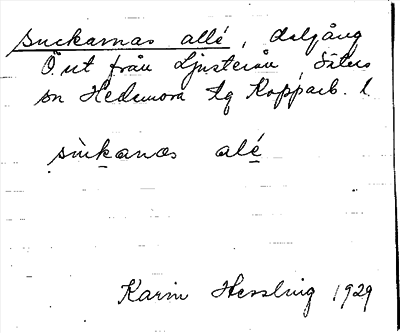 Suckarnas allé, dalgång
Ö. ut från Ljusterån Säters
sn Hedemora tg Kopparb. l.
sùkanas alé
Karin Hessling 1929